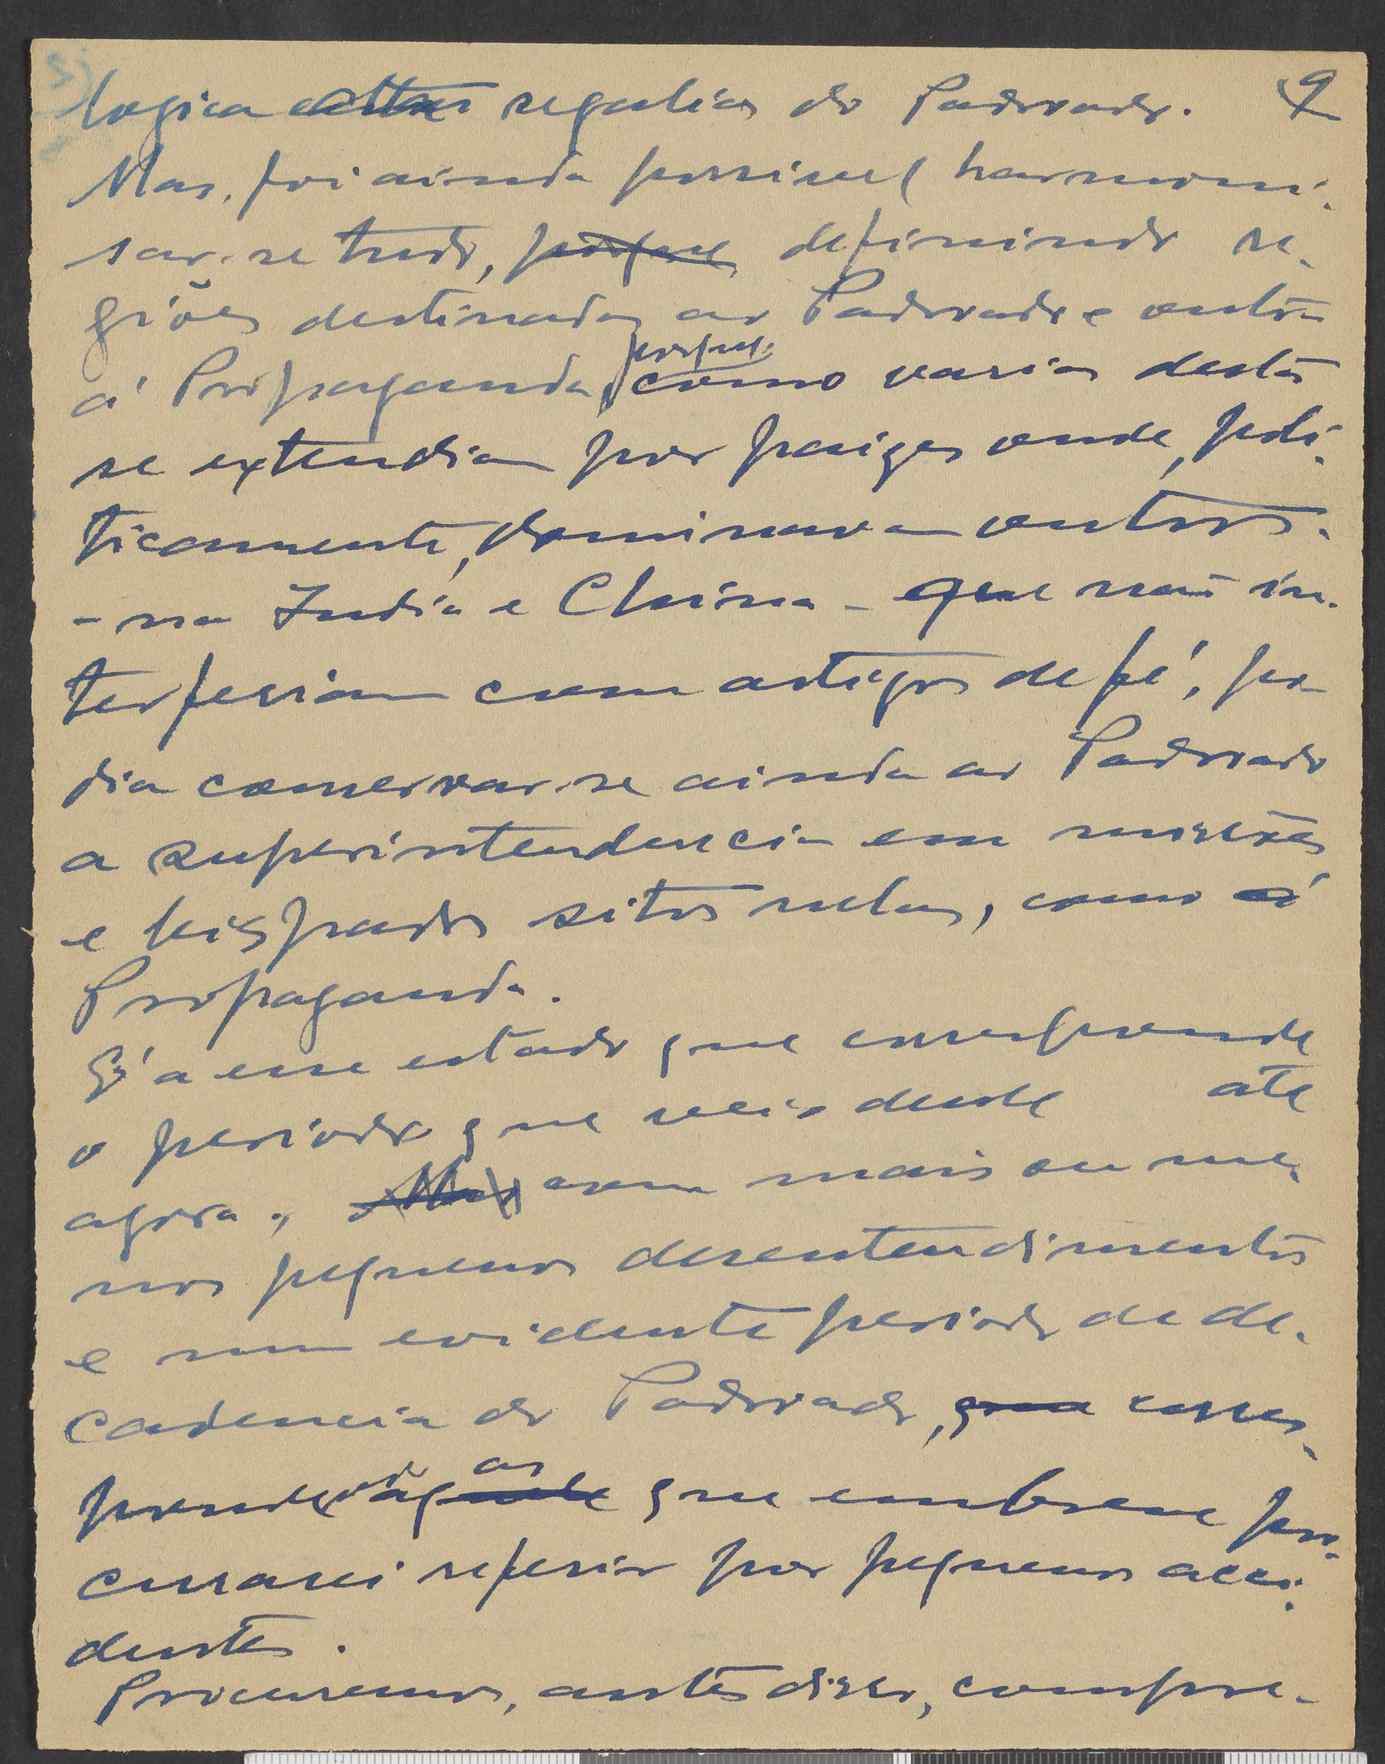 9
logica regalias do Padroado.
Mas, foi ainda possivel harmoni-
sar-se tudo, porque definindo re-
giões destinadas ao Padroado e outras
á Propaganda, porque como varias destas
se extendiam por paizes onde, poli-
ticamente, dominavam outros.
- na India e China - que não in-
terferiam com artigos de fé, po-
dia conservar-se ainda ao Padroado
a superintendencia em missões
e bispados sitos nelas, como á
Propaganda.
É a esse estado que corresponde
o periodo que veio desde até
agora, Mas com mais ou me-
nos pequenos desentendimentos
e num evidente periodo de de-
cadencia do Padroado, que corres-
ponde que em breve pro-
curarei referir por pequenos acci-
dentes.
Procuremos, antes disso, compre-